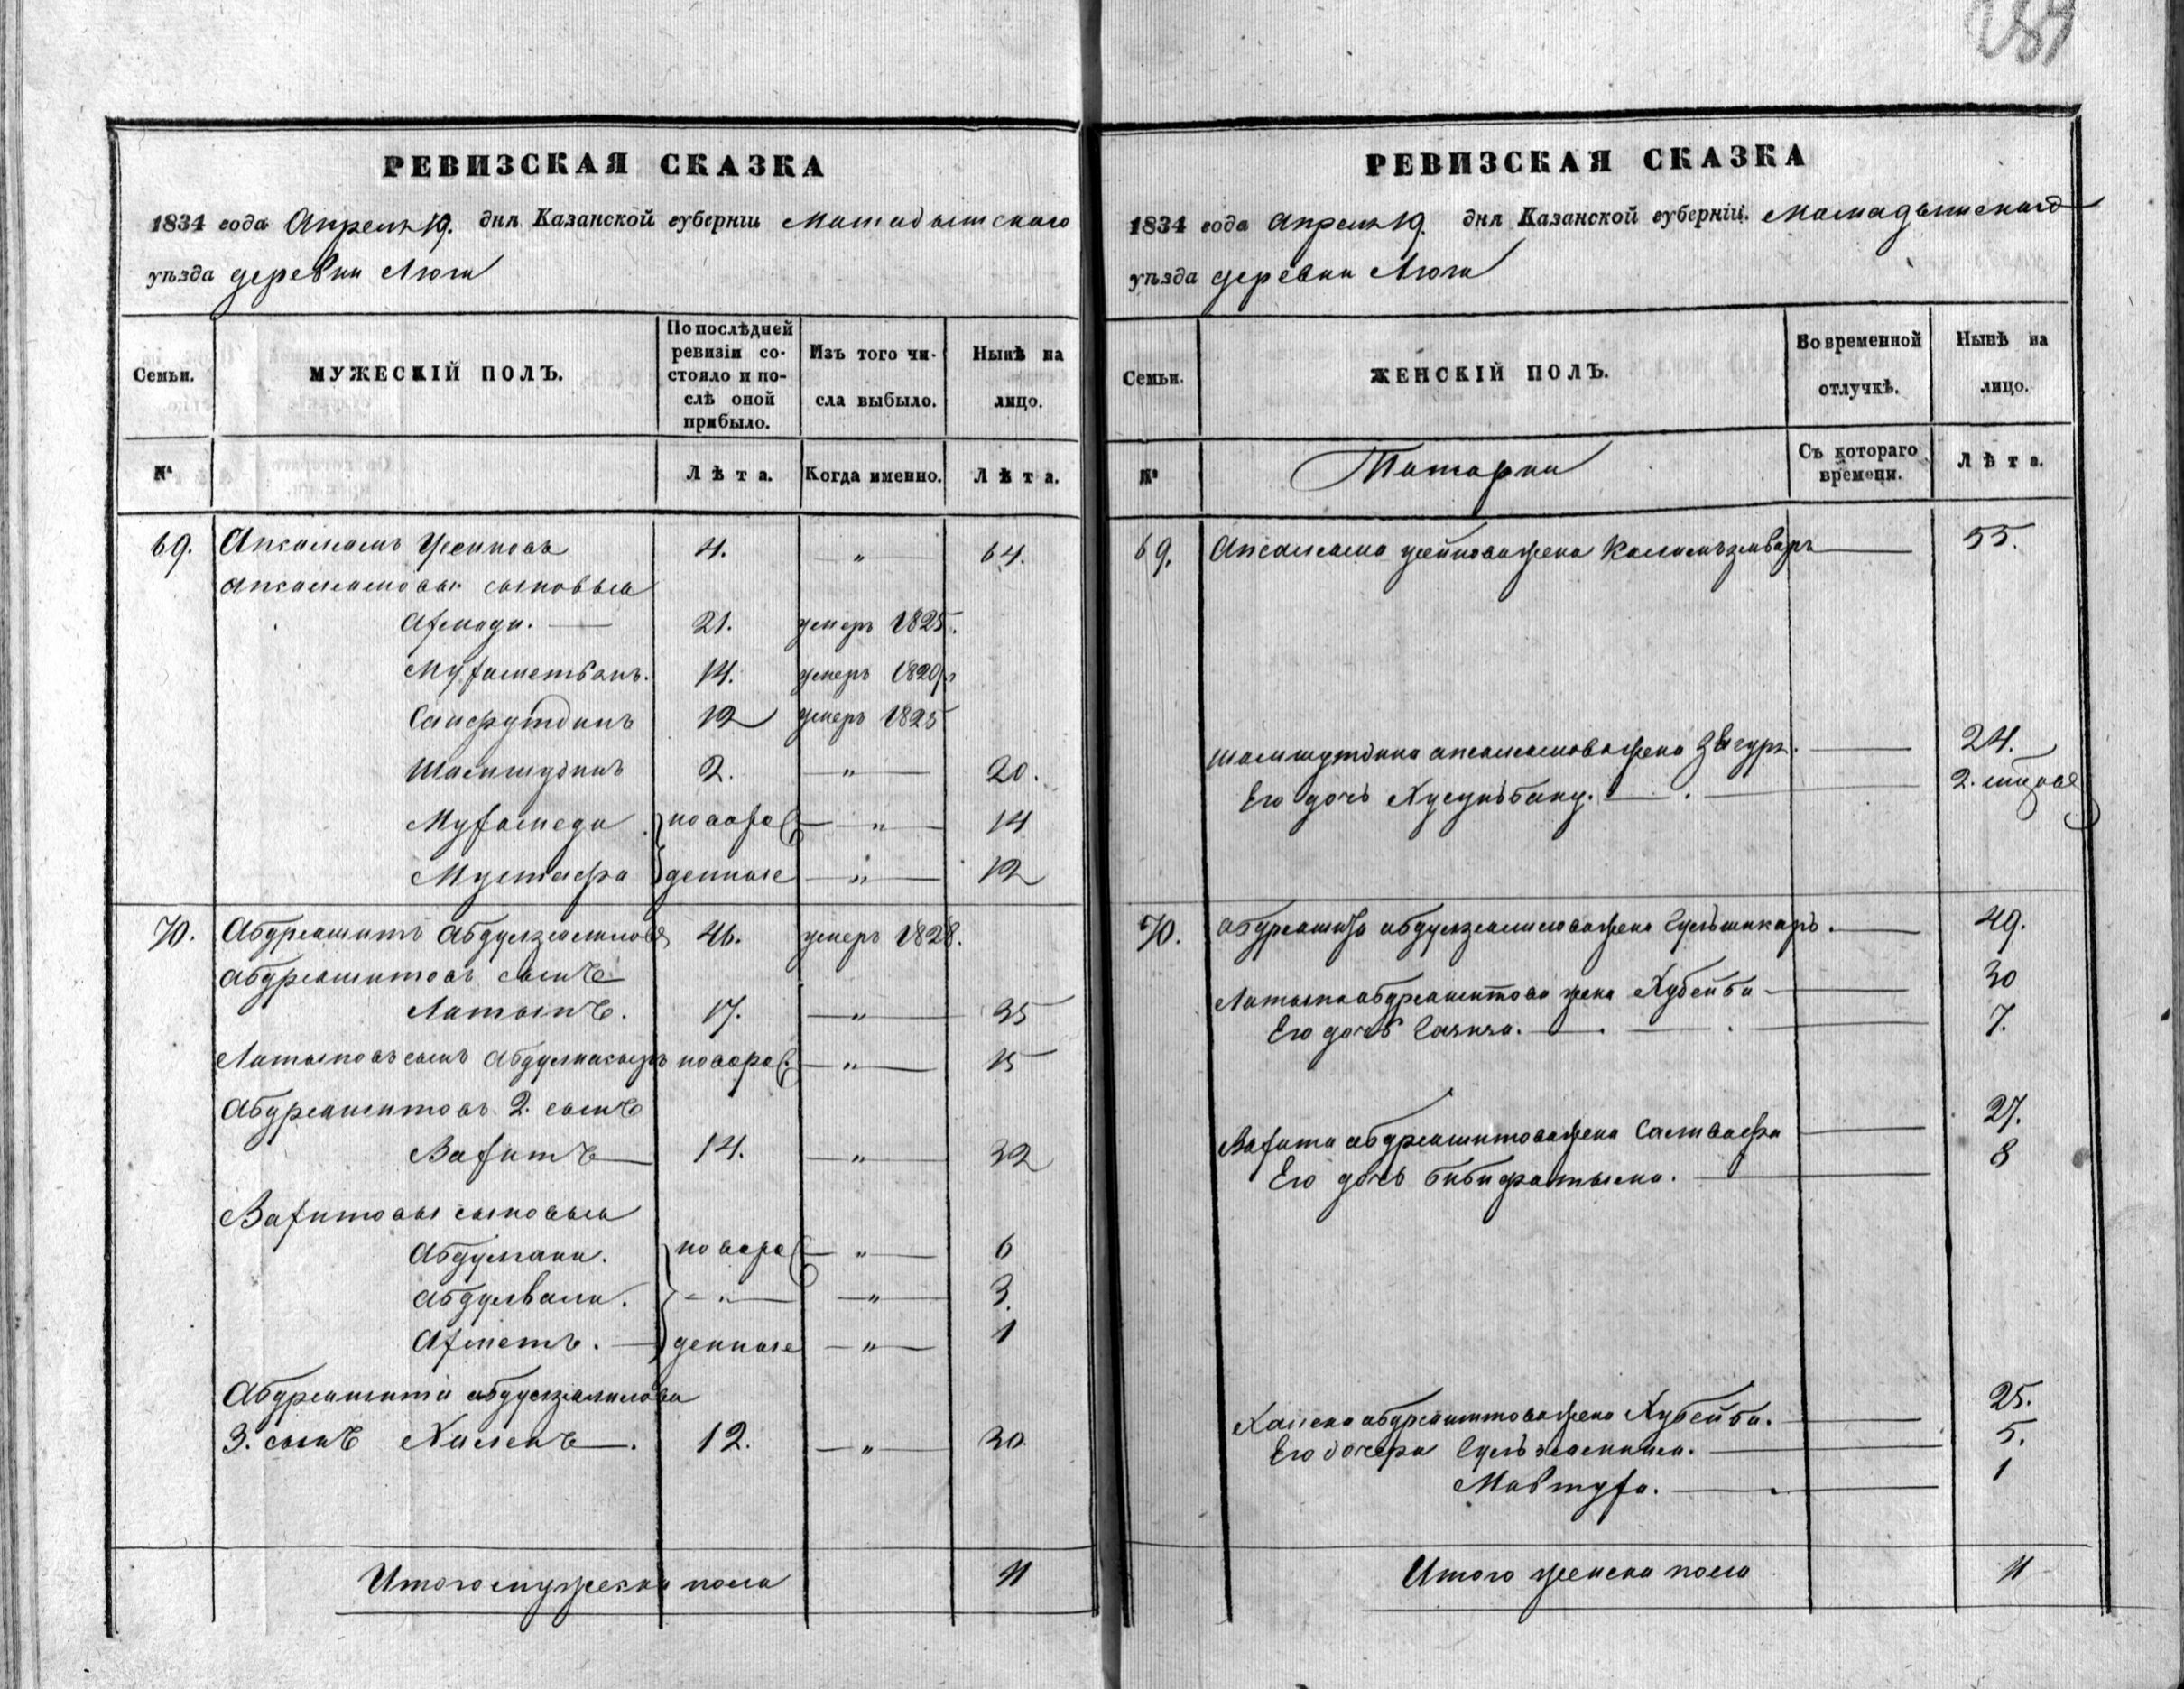 289
РЕВИЗСКАЯ СКАЗКА
1834 года Апреля 19. дня Казанской губерніи Мамадышскаго
уѣзда деревни Люги
Семьи.
МУЖЕСКІЙ ПОЛЪ.
По послѣдней ревизіи состояло и послѣ оной прибыло.
Изъ того числа выбыло.
Нынѣ на лицо.
№
Лѣта.
Когда именно.
Лѣта.
69. Апкаламъ Усеиновъ 4. — " — 64.
Апкаламовы сыновья
Ахмади. — 21. умеръ 1825.
Мухаметьянъ. 14. умеръ 1820
Сайфутдинъ 12 умеръ 1825
Шамшудинъ 2. — " — 20.
Мухамеди новоро — " — 14
Мустафа жденные — " — 12
70. Абдрешитъ Абдулзелиловъ 46. умеръ 1828.
Абдрешитовъ сынъ
Латыпъ. 17. — " — 35
Латыповъ сынъ Абдулнасыръ новорож. — " — 15
Абдрешитовъ 2. сынъ
Вахитъ — 14. — " — 32
Вахитовы сыновья
Абдулгани. новоро — " — 6
Абдулвали. — " — — " — 3.
Ахметъ. — жденные — " — 1
Абдрешита Абдулзелилова
3. сынъ Халекъ —. 12. — " — 30.
Итого мужеска пола 11
РЕВИЗСКАЯ СКАЗКА
1834 года Апреля 19. дня Казанской губерніи. Мамадышскаго
уѣзда деревни Люги
Семьи.
ЖЕНСКІЙ ПОЛЪ.
Во временной отлучкѣ.
Нынѣ на лицо.
№
Татарки
Съ котораго времени.
Лѣта.
69. Апкалама Усеинова жена — 55.
Шамшутдина Апкаламова жена Звгура. — 24.
Его дочь Хуснъбану. — 2.
70. Абдрешита Абдулзелилова жена Гульшикаръ. — 49.
Латыпа Абдрешитова жена Хубейба — 30
Его дочь Газиза. — 7.
Вахита Абдрешитова жена — 27.
Его дочь Бибифатыма. — 8
Халека Абдрешитова жена Хубейба. — 25.
Его дочери — 5.
Мавтуха. — 1
Итого женска пола 11